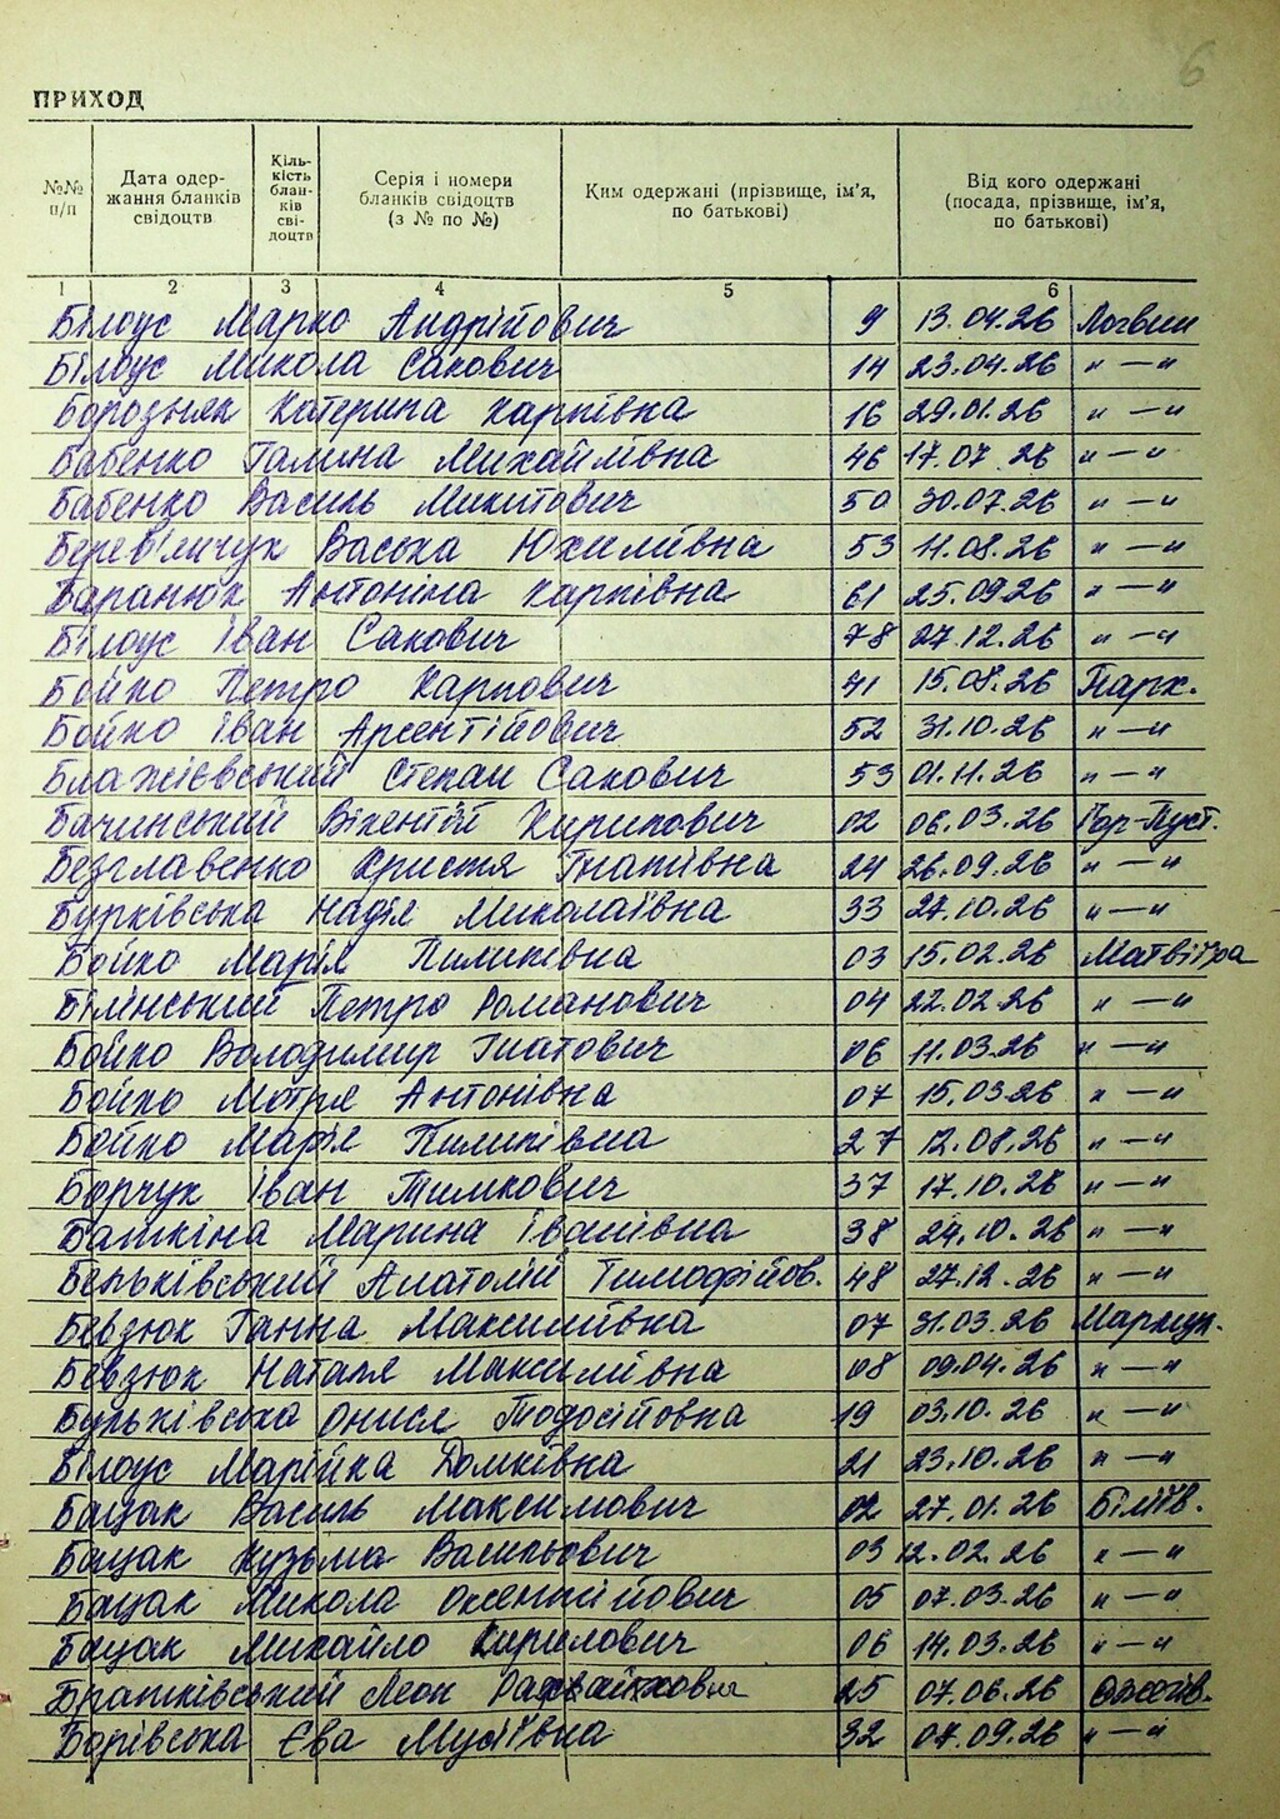 6
ПРИХОД
№№ п/п
Дата одер-
жання бланків
свідоцтв
Кіль-
кість
блан-
ків
сві-
доцтв
Серія і номери
бланків свідоцтв
(з № по №)
Ким одержані (прізвище, ім'я,
по батькові)
Від кого одержані
(посада, прізвище, ім'я,
по батькові)
1 2 3 4 5 6
Білоус Марко Андрійович 9 13.04.26 Логвин
Білоус Микола Сакович 14 23.04.26 "—"
Борозняк Катерина Карпівна 16 29.01.26 "—"
Бабенко Галина Михайлівна 46 17.07.26 "—"
Бабенко Василь Микитович 50 30.07.26 "—"
Берев'ячук Васька Юхимівна 53 11.08.26 "—"
Баранюк Антоніна Карпівна 61 25.09.26 "—"
Білоус Іван Сакович 78 27.12.26 "—"
Бойко Петро Карпович 41 15.08.26 Парх.
Бойко Іван Арсентійович 52 31.10.26 "—"
Блажієвський Степан Сакович 53 01.11.26 "—"
Бачинський Вікентій Кирилович 02 06.03.26 Гор-Пуст.
Безглавенко Христя Гнатівна 24 26.09.26 "—"
Бурківська Надія Миколаївна 33 27.10.26 "—"
Бойко Марія Пилипівна 03 15.02.26 Матвіїха
Білінський Петро Романович 04 22.02.26 "—"
Бойко Володимир Гнатович 06 11.03.26 "—"
Бойко Мотря Антонівна 07 15.03.26 "—"
Бойко Марія Пилипівна 27 12.08.26 "—"
Борчук Іван Тимкович 37 17.10.26 "—"
Баткіна Марина Іванівна 38 24.10.26 "—"
Беньківський Анатолій Тимофійов. 48 27.12.26 "—"
Бевзюк Ганна Максимівна 07 31.03.26
Бевзюк Наталя Максимівна 08 09.04.26 "—"
Бульківська Онися Тодосіїовна 19 03.10.26 "—"
Білоус Марійка Домківна 21 23.10.26 "—"
Бацак Василь Максимович 02 27.01.26 Біліїв.
Бацак Кузьма Васильович 03 12.02.26 "—"
Бацак Микола Оксентійович 05 07.03.26 "—"
Бацак Михайло Кирилович 06 14.03.26 "—"
Братківський Леон 25 07.06.26
Борівська Єва Мусіївна 32 07.09.26 "—"